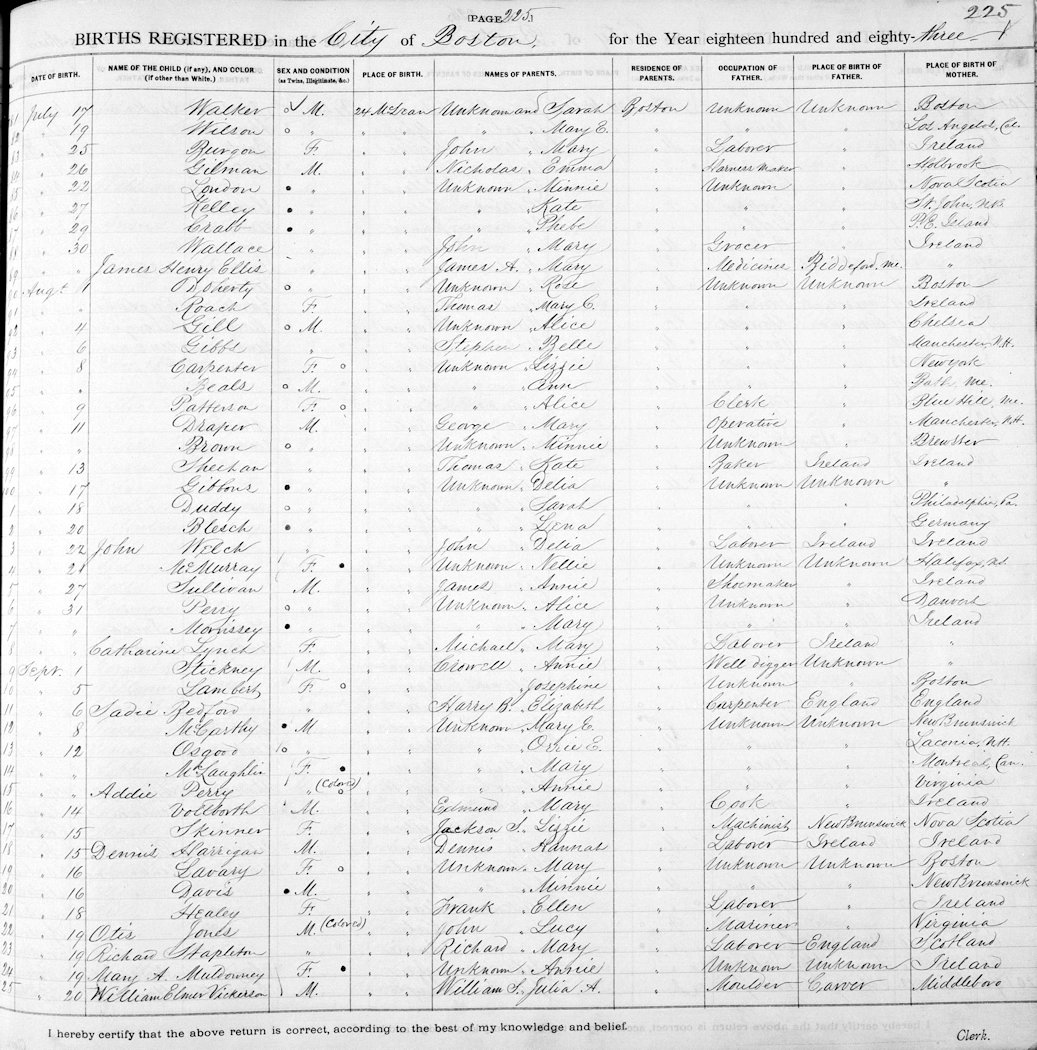 [PAGE 225]
225
BIRTHS REGISTERED in the City of Boston, for the Year eighteen hundred and eighty-three
DATE OF BIRTH. NAME OF THE CHILD (if any), AND COLOR (if other than White.) SEX AND CONDITION (as Twins, Illegitimate, &c.) PLACE OF BIRTH. NAMES OF PARENTS. RESIDENCE OF PARENTS. OCCUPATION OF FATHER. PLACE OF BIRTH OF FATHER. PLACE OF BIRTH OF MOTHER.
July 17 Walker o M. 24 McLean Unknown and Sarah Boston Unknown Unknown Boston
" 19 Wilson o " " " " " Mary E. " " " Los Angelos, Cal.
" 25 Burgon F. " " John " Mary " Laborer " Ireland
" 26 Gilman M. " " Nicholas " Emma " Harness Maker " Holbrook
" 22 London • " " " Unknown " Minnie " Unknown " Nova Scotia
" 27 Kelley • " " " " " Kate " " " St. John, N.B.
" 29 Crabb • " " " " " Phebe " " " P.E. Island
" 30 Wallace " " " John " Mary " Grocer " Ireland
" " James Henry Ellis " " " James A. " Mary " Medicines Biddeford, Me. "
Augt 1 O'Doherty o " " " Unknown " Rose " Unknown Unknown Boston
" " Roach F. " " Thomas " Mary C. " " " Ireland
" 4 Gill o M. " " Unknown " Alice " " " Chelsea
" 6 Gibbs " " " Stephen " Belle " " " Manchester, N.H.
" 8 Carpenter F. o " " Unknown " Lizzie " " " New York
" " Beals o M. " " " " Ann " " " Bath, Me.
" 9 Patterson F. o " " " " Alice " Clerk " Blue Hill, Me.
" 11 Draper M. " " George " Mary " Operative " Manchester, N.H.
" " Brown o " " " Unknown " Minnie " Unknown " Brewster
" 13 Sheehan " " " Thomas " Kate " Baker Ireland Ireland
" 17 Gibbons • " " " Unknown " Delia " Unknown Unknown "
" 18 Duddy o " " " " " Sarah " " " Philadelphia, Pa.
" 20 Blesch • " " " " " Lena " " " Germany
" 22 John Welch " " " John " Delia " Laborer Ireland Ireland
" 21 McMurray F. • " " Unknown " Nellie " Unknown Unknown Halifax, N.S.
" 27 Sullivan M. " " James " Annie " Shoemaker " Ireland
" 31 Perry o " " " Unknown " Alice " Unknown " Danvers
" " Morrissey • " " " " " Mary " " " Ireland
" " Catharine Lynch F. " " Michael " Mary " Laborer Ireland "
Sept. 1 Stickney M. " " Crowell " Annie " Well digger Unknown "
" 5 Lambert F. o " " " Josephine " Unknown " Boston
" 6 Sadie Bedford " " " Harry B. " Elizabeth " Carpenter England England
" 8 McCarthy • M " " Unknown " Mary E. " Unknown Unknown New Brunswick
" 12 Osgood o " " " " " Orrie E. " " " Laconia, N.H.
" " McLaughlin F. • " " " " Mary " " " Montreal, Can.
" " Addie Perry (Colored) " o " " " " Annie " " " Virginia
" 14 Vollborth M. " " Edmund " Mary " Cook " Ireland
" 15 Skinner F. " " Jackson S. " Lizzie " Machinist New Brunswick Nova Scotia
" 15 Dennis Harrigan M. " " Dennis " Hannah " Laborer Ireland Ireland
" 16 Lavary F. o " " Unknown " Mary " Unknown Unknown Boston
" 16 Davis • M. " " " " Minnie " " " New Brunswick
" 18 Healey F. " " Frank " Ellen " Laborer " Ireland
" 19 Otis Jones M. (Colored) " " John " Lucy " Mariner " Virginia
" 19 Richard Stapleton " " " Richard " Mary " Laborer England Scotland
" 19 Mary A. Muldowney F. • " " Unknown " Annie " Unknown Unknown Ireland
" 20 William Elmer Vickerson M. " " William S. " Julia A. " Moulder Carver Middleboro
I hereby certify that the above return is correct, according to the best of my knowledge and belief.
Clerk.